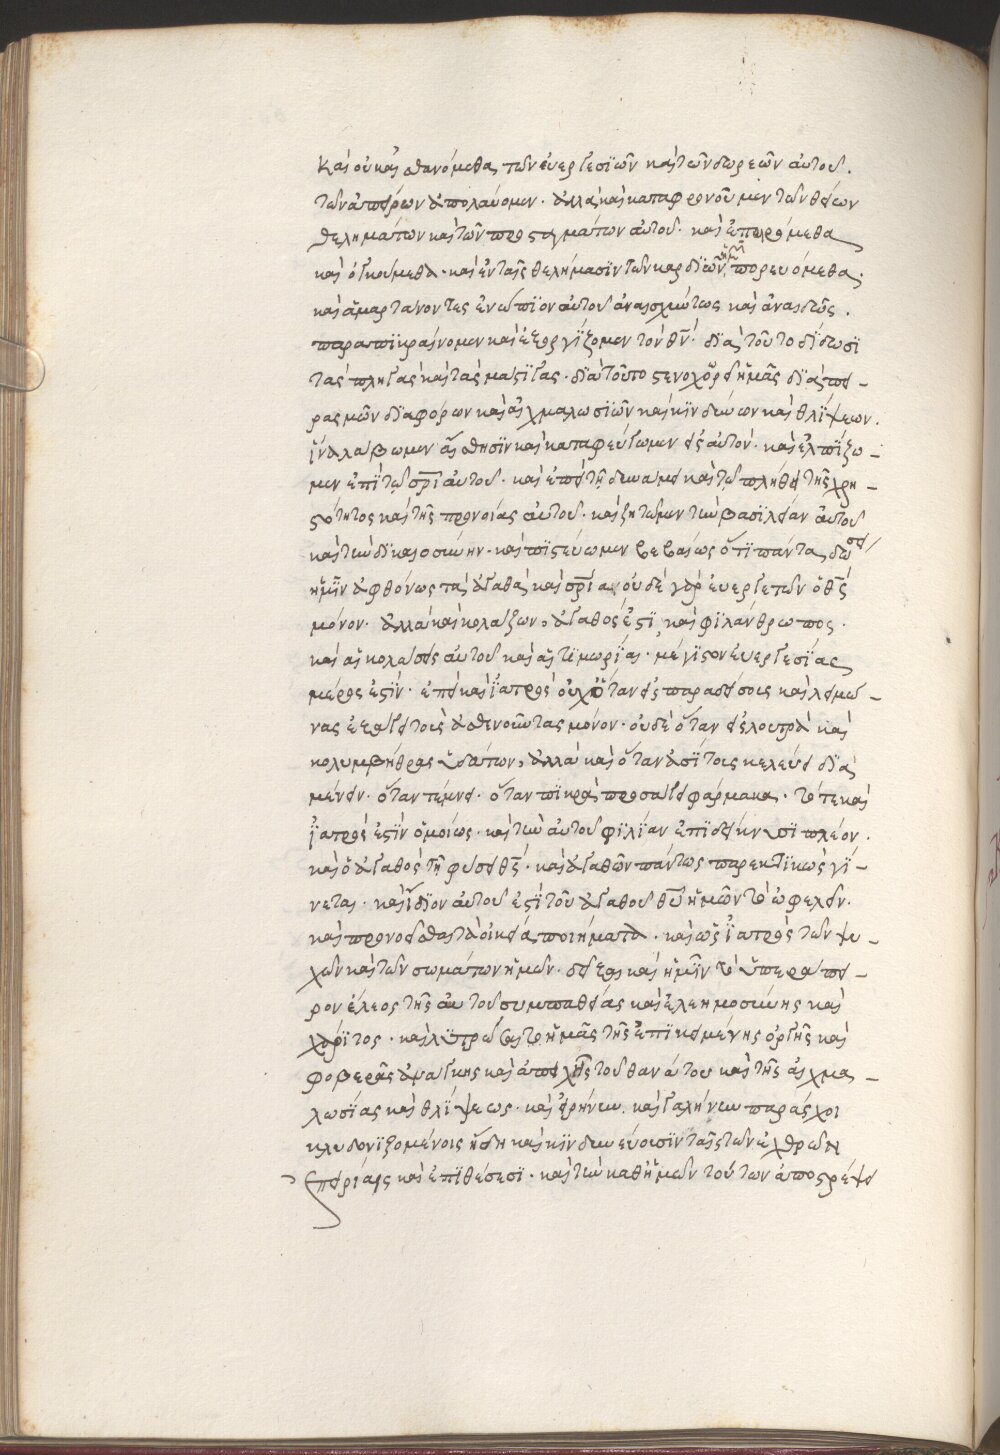 καὶ οὐκ αἰσθανόμεθα τῶν εὐεργεσϊῶν καὶ τῶν δωρεῶν αὐτοῦ.
τῶν ἀπείρων ἀπολαύομεν· ἀλλὰ καὶ καταφρονοῦμεν τῶν θείων
θελημάτων καὶ τῶν προσταγμάτων αὐτοῦ· καὶ ἐπαιρόμεθα
καὶ ὀγκούμεθα· καὶ ἐν ταῖς θελήμασϊν τῶν καρδϊῶν ἡμῶν πορευόμεθα·
καὶ ἁμαρτάνοντες ἐνώπϊον αὐτοῦ ἀναισχύντως καὶ ἀναιδῶς.
παραπϊκραίνομεν καὶ ἐξοργίζομεν τὸν θν̄· δϊὰ τοῦτο δίδωσϊ
τὰς πληγὰς καὶ τὰς μάστϊγας· δϊὰ τοῦτο στενοχωρεῖ ἡμᾶς δϊὰ πει-
ρασμῶν δϊαφόρων καὶ αἰχμαλωσϊῶν καὶ κϊνδύνων καὶ θλίψεων.
ἵνα λάβωμεν αἴσθησϊν καὶ καταφεύγωμεν εἰς αὐτόν· καὶ ἐλπίζω-
μεν ἐπὶ τῷ σρϊ αὐτοῦ· καὶ ἐπὶ τῇ δυνάμει καὶ τῷ πλήθει τῆς χρη-
στότητος καὶ τῆς προνοίας αὐτοῦ· καὶ ζητῶμεν τὴν βασϊλείαν αὐτοῦ
καὶ τὴν δϊκαιοσύνην· καὶ πϊστεύωμεν βεβαίως ὅτϊ πάντα δώσει
ἡμῖν ἀφθόνως τὰ ἀγαθὰ καὶ σρϊα· οὐδὲ γὰρ εὐεργετῶν ὁ θς̄
μόνον· ἀλλὰ καὶ κολάζων, ἀγαθός ἐστϊ καὶ φϊλάνθρωπος·
καὶ αἱ κολάσεις αὐτοῦ καὶ αἱ τϊμωρίαι· μέγϊστον εὐεργεσίας
μέρος ἐστίν· ἐπεὶ καὶ ἰατρὸς οὐχ ὅταν εἰς παραδείσους καὶ λειμῶ-
νας ἐξάγει τοὺς ἀσθενοῦντας μόνον· οὐδὲ ὅταν εἰς λουτρὰ καὶ
κολυμβήθρας ὑδάτων, ἀλλὰ καὶ ὅταν ἀσίτοις κελεύει δϊα
μένειν· ὅταν τέμνει· ὅταν πϊκρὰ προσάγει φάρμακα· τότε καὶ
ἰατρὸς ἐστὶν ὁμοίως· καὶ τὴν αὐτοῦ φϊλίαν ἐπϊδείκνυσϊ πλέον.
καὶ ὁ ἀγαθὸς τῇ φύσει θς̄· καὶ ἀγαθῶν πάντως παρεκτϊκὼς γί-
νεται· καὶ ἴδϊον αὐτοῦ ἐστὶ τοῦ ἀγαθοῦ θῡ ἡμῶν τὸ ὠφελεῖν.
καὶ προνοεῖσθαι τὰ οἰκεῖα ποιήματα· καὶ ὡς ἰατρὸς τῶν ψυ-
χῶν καὶ τῶν σωμάτων ἡμῶν· δείξαι καὶ ἡμῖν τὸ ὑπεράπει-
ρον ἔλεος τῆς αὐτοῦ συμπαθείας καὶ ἐλεημοσύνης καὶ
χάρϊτος· καὶ λυτρώσαιτο ἡμᾶς τῆς ἐπϊκειμένης ὀργῆς καὶ
φοβερᾶς ἀνάγκης καὶ ἀπειλῆς τοῦ θανάτου καὶ τῆς αἰχμα-
λωσίας καὶ θλίψεως· καὶ εἰρήνην καὶ γαλήνην παράσχοι
κλυδονϊζομένοις ἤδη καὶ κϊνδυνεύουσϊν ταῖς τῶν ἐχθρῶν
ἐπηρίαις καὶ ἐπϊθέσεσϊ· καὶ τὴν καθ' ἡμῶν τούτων ἀποστρέψει